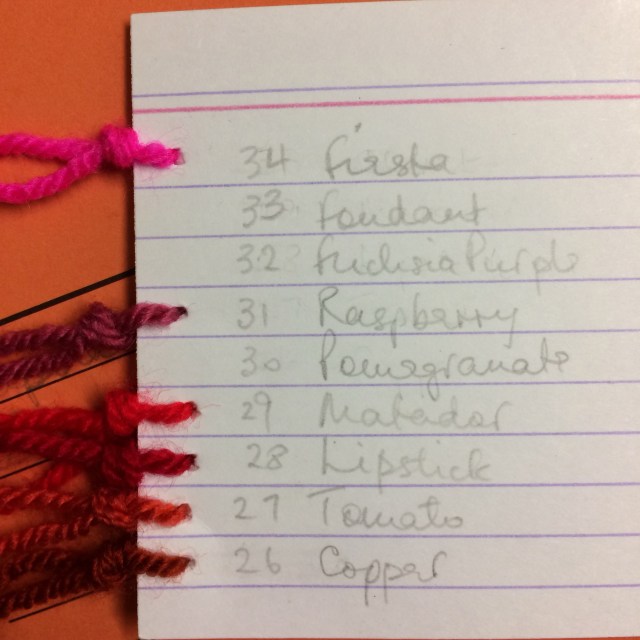 34 Fiesta
33 Fondant
32 Fuchsia Purple
31 Raspberry
30 Pomegranate
29 Matador
28 Lipstick
27 Tomato
26 Copper